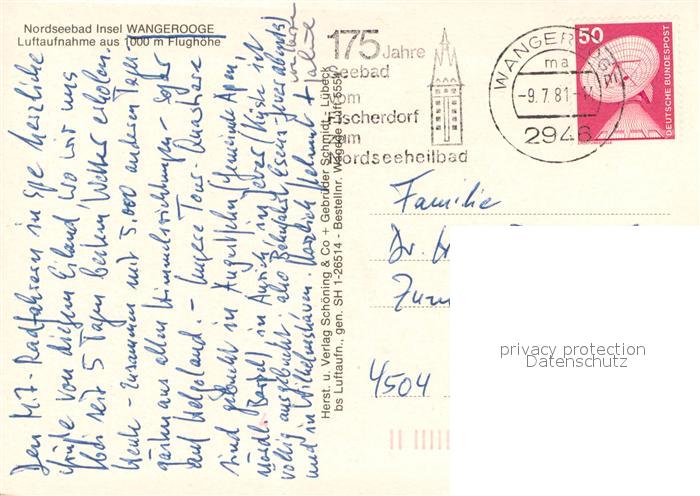 Nordseebad Insel WANGEROOGE
Luftaufnahme aus 1000 m Flughöhe
Den M.7.-Radfahrern in Spe herzliche
Grüße von diesem Eiland, wo wir uns
bei seit 5 Tagen bestem Wetter erholen.
Heute - zusammen mit 5.000 anderen Tages-
gästen aus allen Himmelsrichtungen - sogar
auf Helgoland. - Unsere Tour-Quartiere
sind gebucht in Augustfehn (Gemeinde Apen,
nördl. Barßel), in Aurich, in Jever (Küste ist
völlig ausgebucht, also Bahnfahrt Esens-Jever abends)
und in Wilhelmshaven. Herzlich Helmut +
Herst. u. Verlag Schöning & Co + Gebrüder Schmidt - Lübeck
bs Luftaufn., gen. SH 1-26514 - Bestellnr. Wagede Luft 5559
175 Jahre
Seebad
Vom
Fischerdorf
zum
Nordseeheilbad
WANGEROOGE
ma
-9.7.81-
2946
50
DEUTSCHE BUNDESPOST
Familie
Dr.
4504
privacy protection
Datenschutz